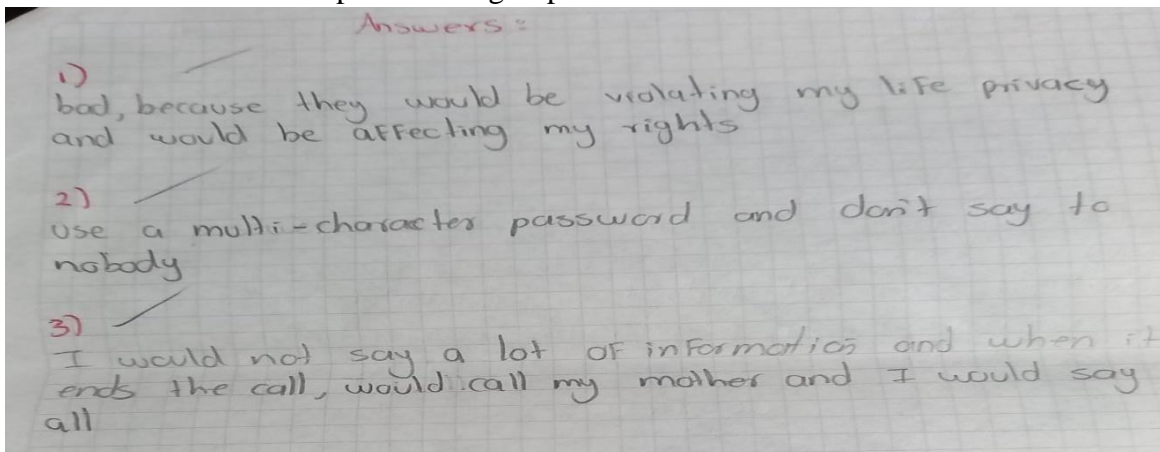 Answers:
1)
bad, because they would be violating my life privacy
and would be affecting my rights
2)
use a multi-character password and don't say to
nobody
3)
I would not say a lot of information and when it
ends the call, would call my mother and I would say
all